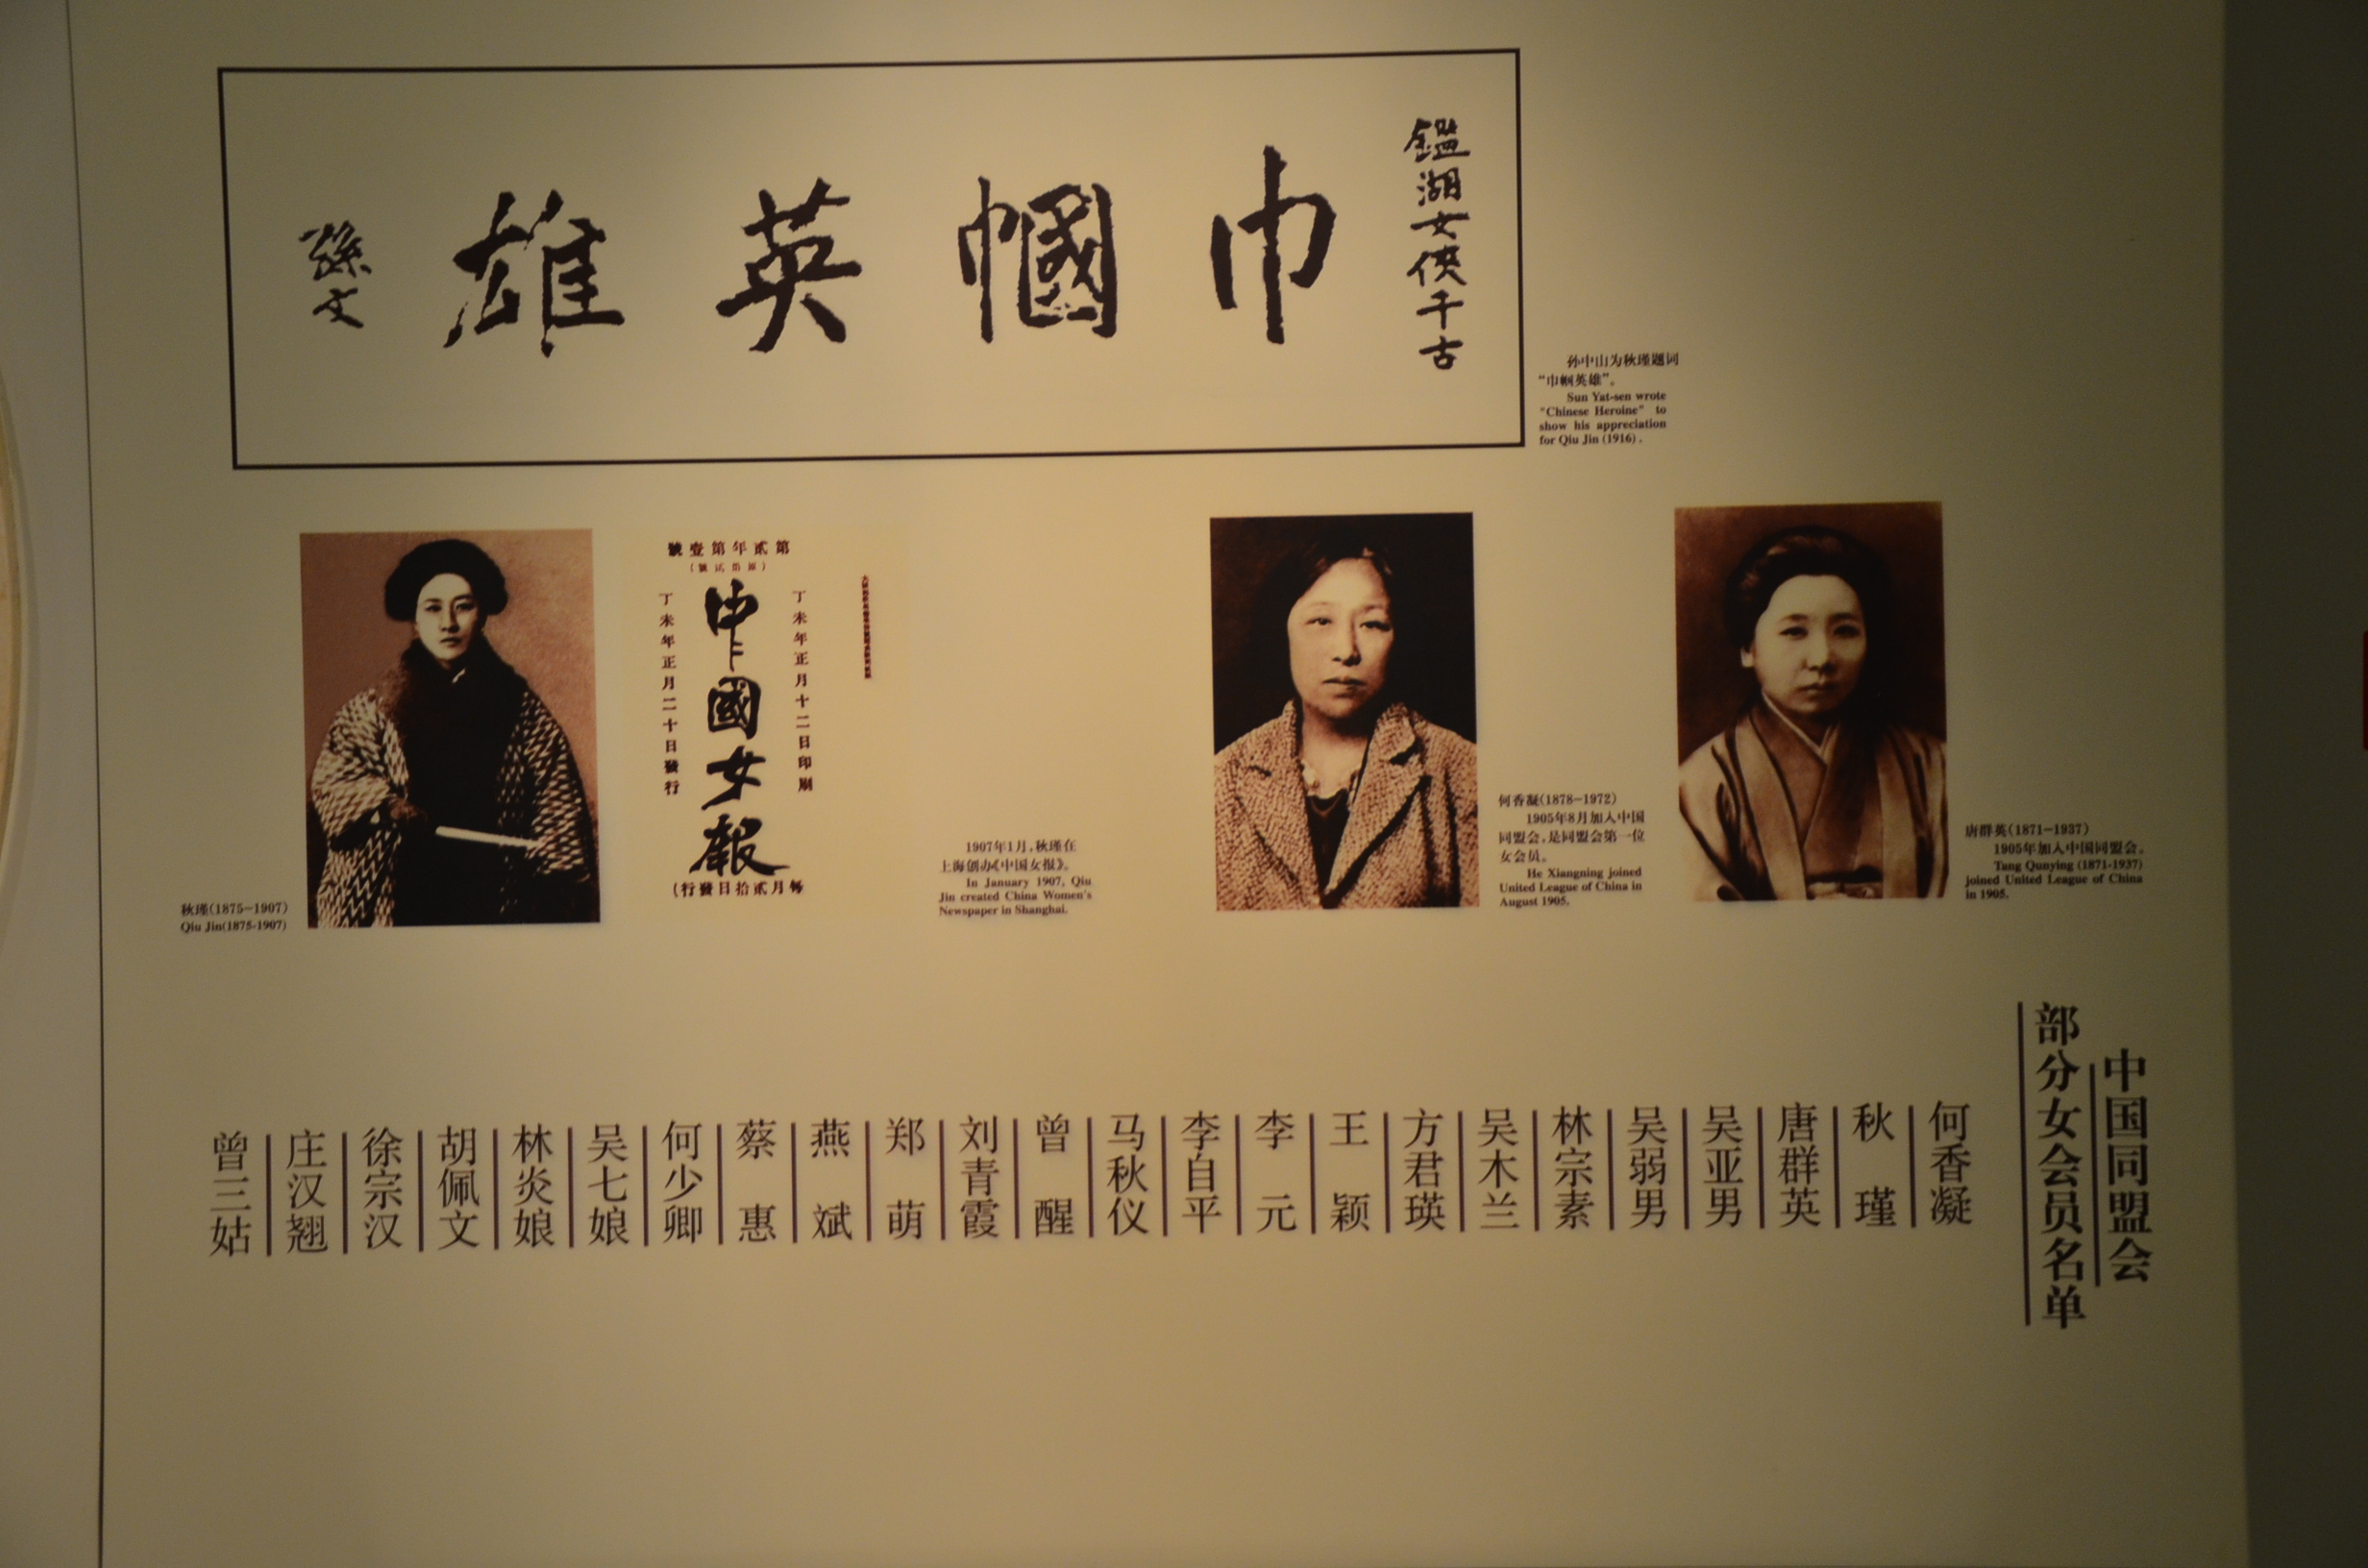 鑑湖女俠千古
巾幗英雄
孫文
孙中山为秋瑾题词
“巾帼英雄”。
Sun Yat-sen wrote
"Chinese Heroine" to
show his appreciation
for Qiu Jin (1916).
秋瑾(1875-1907)
Qiu Jin(1875-1907)
第貳年第壹號
丁未年正月十二日印刷
中國女報
丁未年正月二十日發行
(每月貳拾日發行)
1907年1月,秋瑾在
上海创办《中国女报》。
In January 1907, Qiu
Jin created China Women's
Newspaper in Shanghai.
何香凝(1878-1972)
1905年8月加入中国
同盟会,是同盟会第一位
女会员。
He Xiangning joined
United League of China in
August 1905.
唐群英(1871-1937)
1905年加入中国同盟会。
Tang Qunying (1871-1937)
joined United League of China
in 1905.
中国同盟会
部分女会员名单
何香凝
秋瑾
唐群英
吴亚男
吴弱男
林宗素
吴木兰
方君瑛
王颖
李元
李自平
马秋仪
曾醒
刘青霞
郑萌
燕斌
蔡惠
何少卿
吴七娘
林炎娘
胡佩文
徐宗汉
庄汉翘
曾三姑